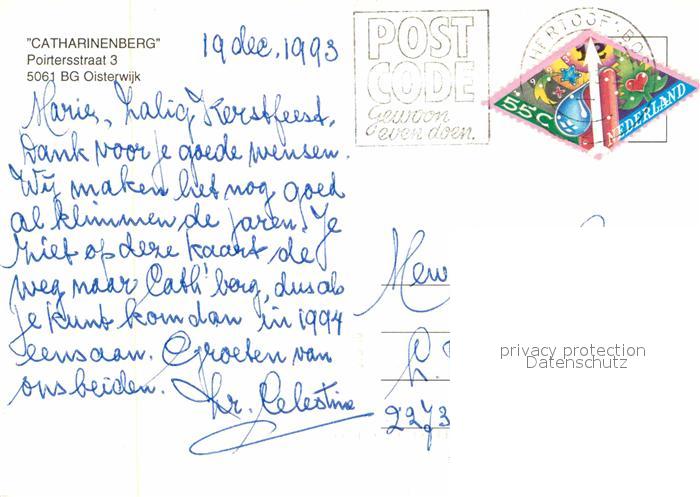 "CATHARINENBERG"
Poirtersstraat 3
5061 BG Oisterwijk
19 dec. 1993
Zalig Kerstfeest.
Dank voor je goede wensen.
Wij maken het nog goed
al klimmen de jaren! Je
ziet op deze kaart de
weg naar Cath'berg, dus als
je kunt kom dan in 1994
eens aan. Groeten van
ons beiden. Zr. Celestine
POST
CODE
Gewoon
even doen.
HERTOGENBOS
55c
NEDERLAND
Mew
2273
privacy protection
Datenschutz